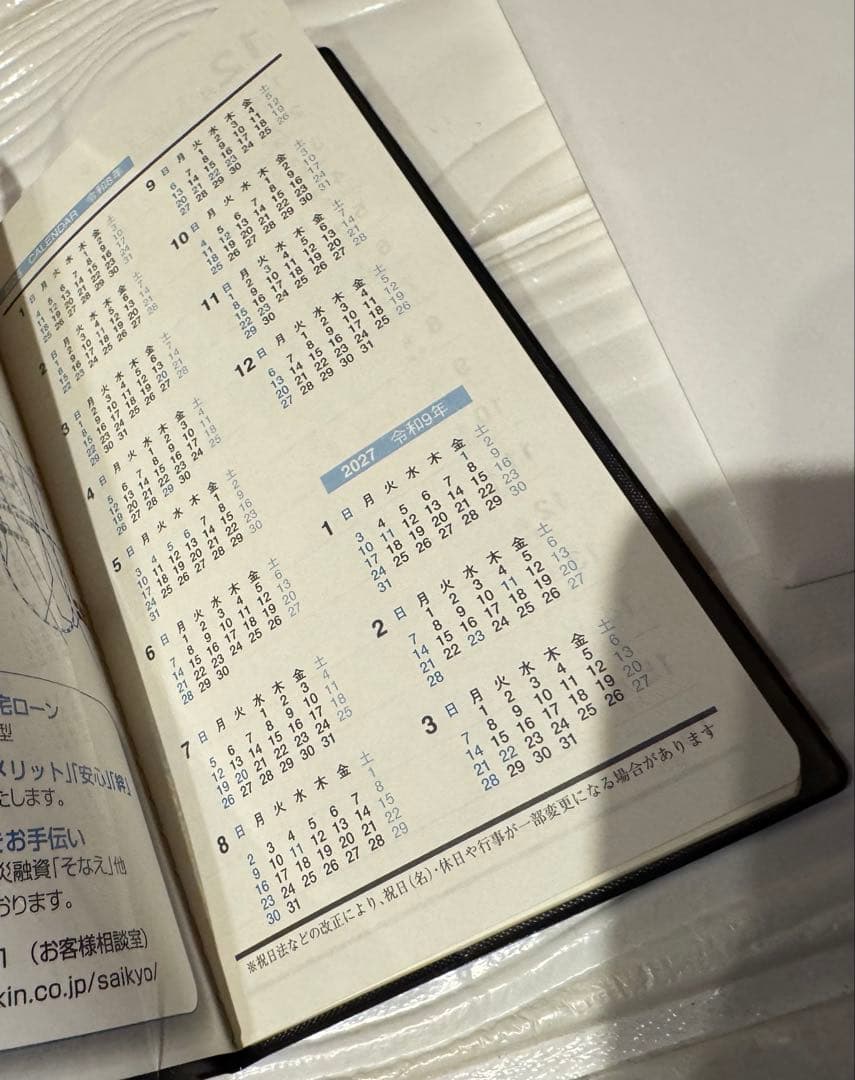 宅ローン
型
メリット」「安心」「絆」
たします。
をお手伝い
災融資「そなえ」他
おります。
1 （お客様相談室）
kin.co.jp/saikyo/
CALENDAR 令和8年
1 日 月 火 水 木 金 土
1 2 3
4 5 6 7 8 9 10
11 12 13 14 15 16 17
18 19 20 21 22 23 24
25 26 27 28 29 30 31
2 日 月 火 水 木 金 土
1 2 3 4 5 6 7
8 9 10 11 12 13 14
15 16 17 18 19 20 21
22 23 24 25 26 27 28
3 日 月 火 水 木 金 土
1 2 3 4 5 6 7
8 9 10 11 12 13 14
15 16 17 18 19 20 21
22 23 24 25 26 27 28
29 30 31
4 日 月 火 水 木 金 土
1 2 3 4
5 6 7 8 9 10 11
12 13 14 15 16 17 18
19 20 21 22 23 24 25
26 27 28 29 30
5 日 月 火 水 木 金 土
1 2
3 4 5 6 7 8 9
10 11 12 13 14 15 16
17 18 19 20 21 22 23
24 25 26 27 28 29 30
31
6 日 月 火 水 木 金 土
1 2 3 4 5 6
7 8 9 10 11 12 13
14 15 16 17 18 19 20
21 22 23 24 25 26 27
28 29 30
7 日 月 火 水 木 金 土
1 2 3 4
5 6 7 8 9 10 11
12 13 14 15 16 17 18
19 20 21 22 23 24 25
26 27 28 29 30 31
8 日 月 火 水 木 金 土
1
2 3 4 5 6 7 8
9 10 11 12 13 14 15
16 17 18 19 20 21 22
23 24 25 26 27 28 29
30 31
9 日 月 火 水 木 金 土
1 2 3 4 5
6 7 8 9 10 11 12
13 14 15 16 17 18 19
20 21 22 23 24 25 26
27 28 29 30
10 日 月 火 水 木 金 土
1 2 3
4 5 6 7 8 9 10
11 12 13 14 15 16 17
18 19 20 21 22 23 24
25 26 27 28 29 30 31
11 日 月 火 水 木 金 土
1 2 3 4 5 6 7
8 9 10 11 12 13 14
15 16 17 18 19 20 21
22 23 24 25 26 27 28
29 30
12 日 月 火 水 木 金 土
1 2 3 4 5
6 7 8 9 10 11 12
13 14 15 16 17 18 19
20 21 22 23 24 25 26
27 28 29 30 31
2027 令和9年
1 日 月 火 水 木 金 土
1 2
3 4 5 6 7 8 9
10 11 12 13 14 15 16
17 18 19 20 21 22 23
24 25 26 27 28 29 30
31
2 日 月 火 水 木 金 土
1 2 3 4 5 6
7 8 9 10 11 12 13
14 15 16 17 18 19 20
21 22 23 24 25 26 27
28
3 日 月 火 水 木 金 土
1 2 3 4 5 6
7 8 9 10 11 12 13
14 15 16 17 18 19 20
21 22 23 24 25 26 27
28 29 30 31
※祝日法などの改正により、祝日（名）・休日や行事が一部変更になる場合があります